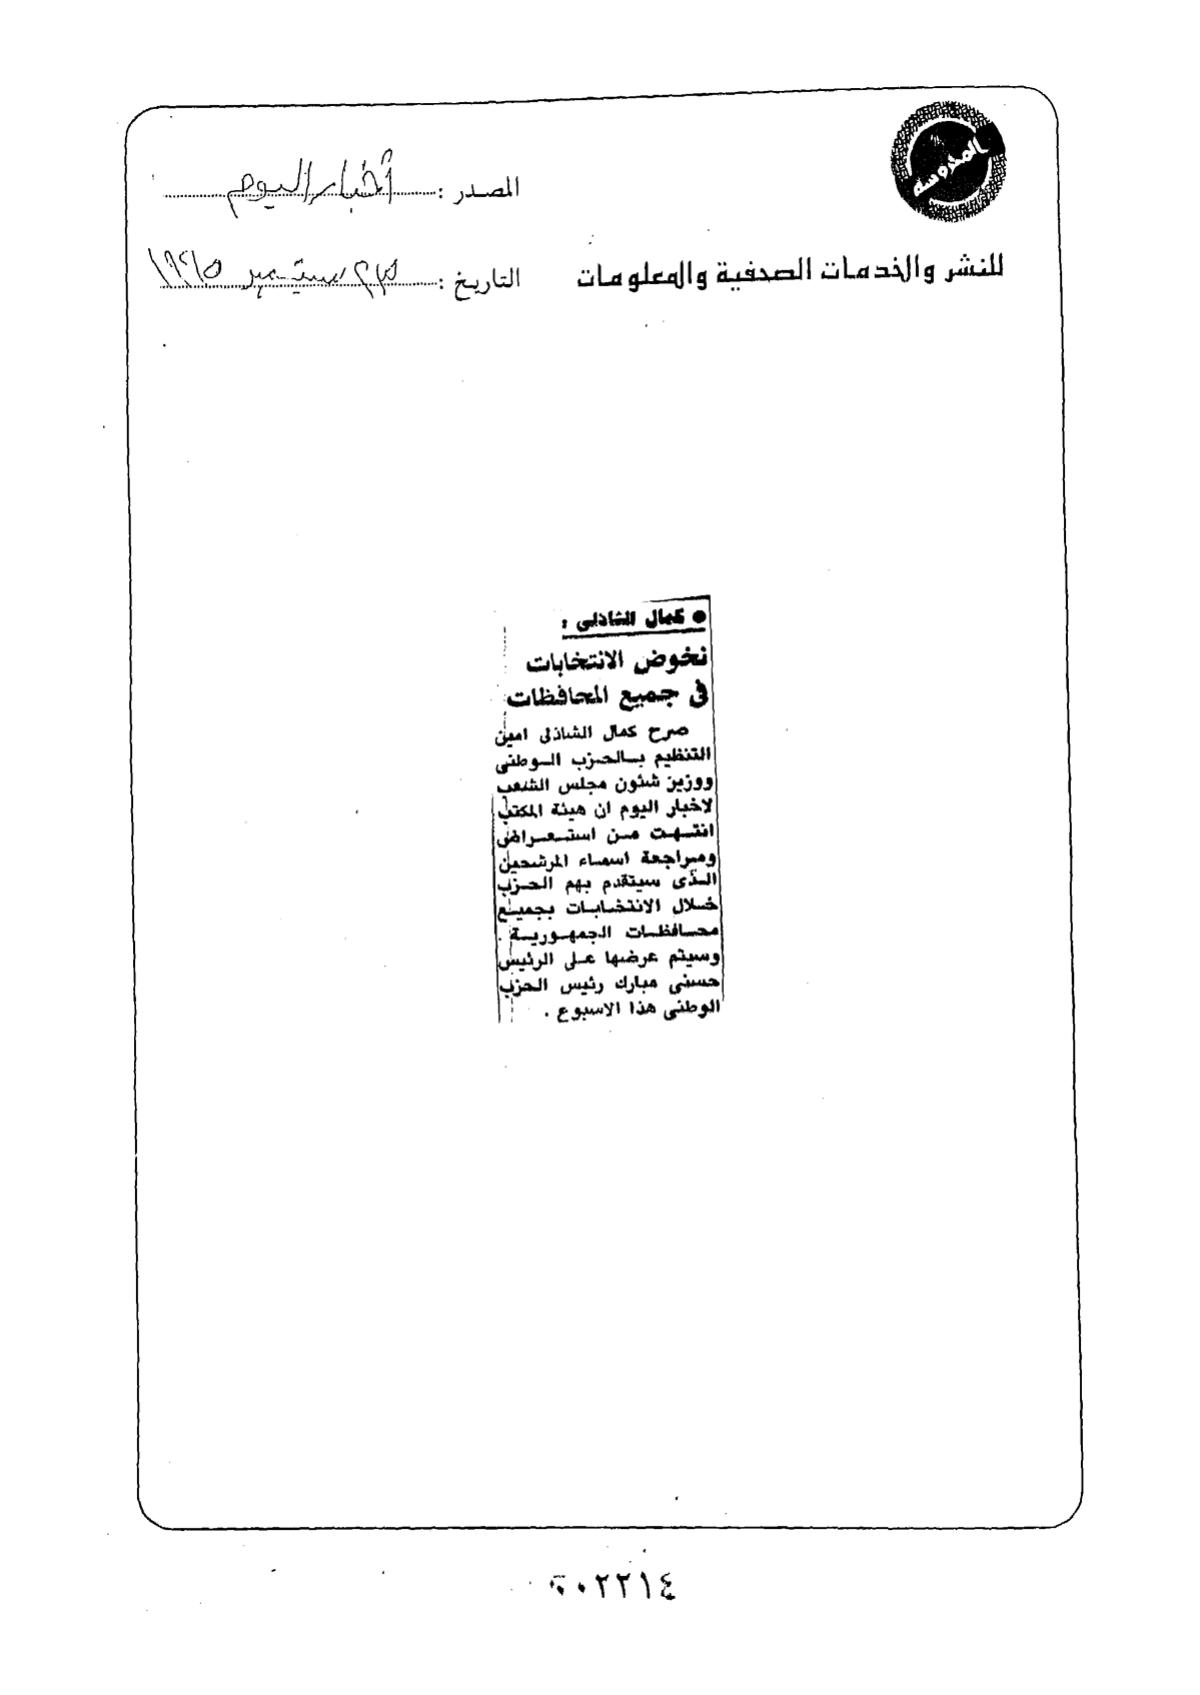 المحروسة
المصدر : أخبار اليوم
للنشر والخدمات الصحفية والمعلومات
التاريخ : سبتمبر
● كمال الشاذلى :
نخوض الانتخابات
فى جميع المحافظات
صرح كمال الشاذلى امين
التنظيم بالحزب الوطنى
ووزير شئون مجلس الشعب
لاخبار اليوم ان هيئة المكتب
انتهت من استعراض
ومراجعة اسماء المرشحين
الذى سيتقدم بهم الحزب
خلال الانتخابات بجميع
محافظات الجمهورية .
وسيتم عرضها على الرئيس
حسنى مبارك رئيس الحزب
الوطنى هذا الاسبوع .